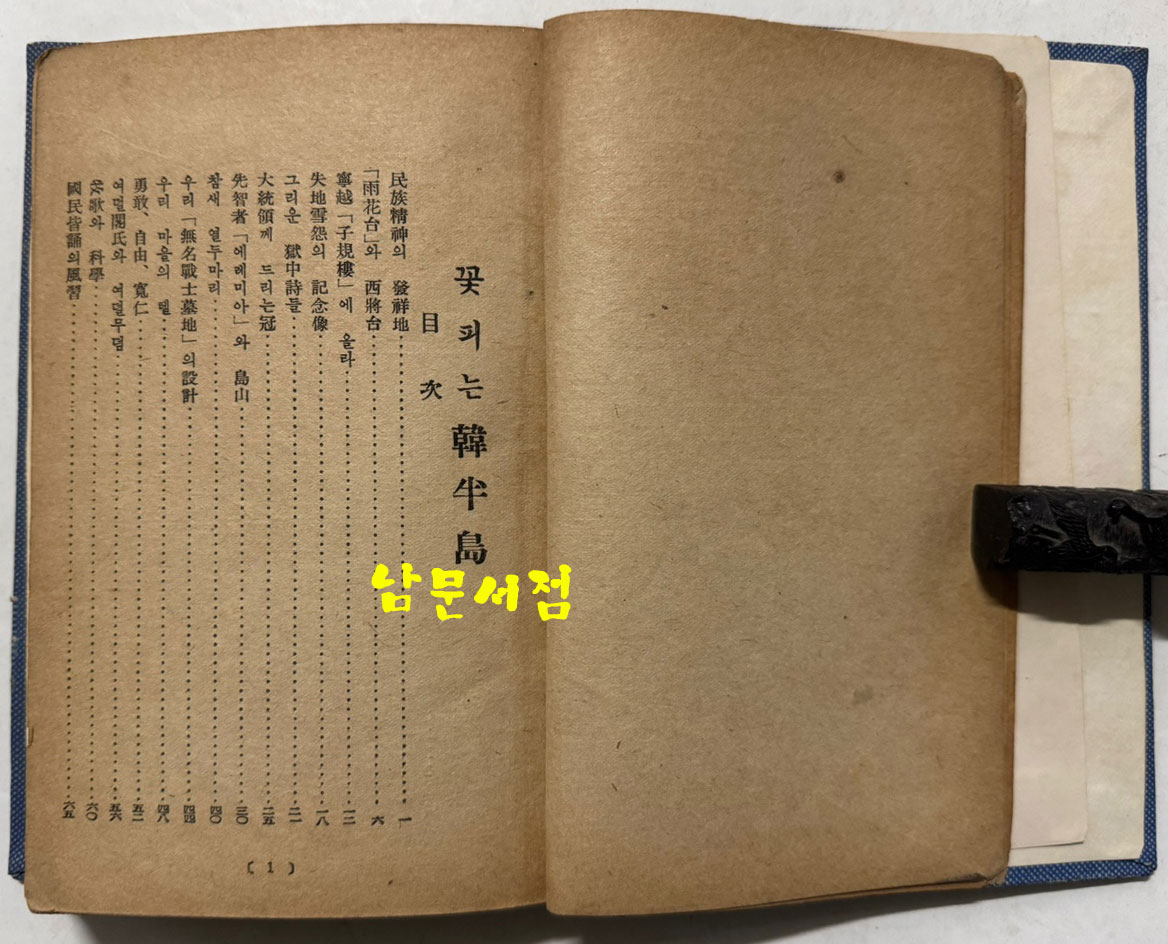 꽃피는 韓半島
目次
民族精神의 發祥地 一
「雨花台」와 西將台 六
寧越「子規樓」에 올라 一二
失地雪怨의 記念像 一八
그리운 獄中詩들 二一
大統領께 드리는 冠 二五
先智者「에레미아」와 島山 三〇
참새 열두마리 四〇
우리「無名戰士墓地」의 設計 四四
우리 마을의 텔 四八
勇敢、自由、寬仁 五二
여덜閣氏와 여덜무덤 五六
詩歌와 科學 六〇
國民皆誦의 風習 六五
( 1 )
남문서점